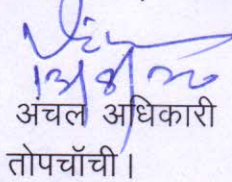 13/8/20
अंचल अधिकारी
तोपचाँची।